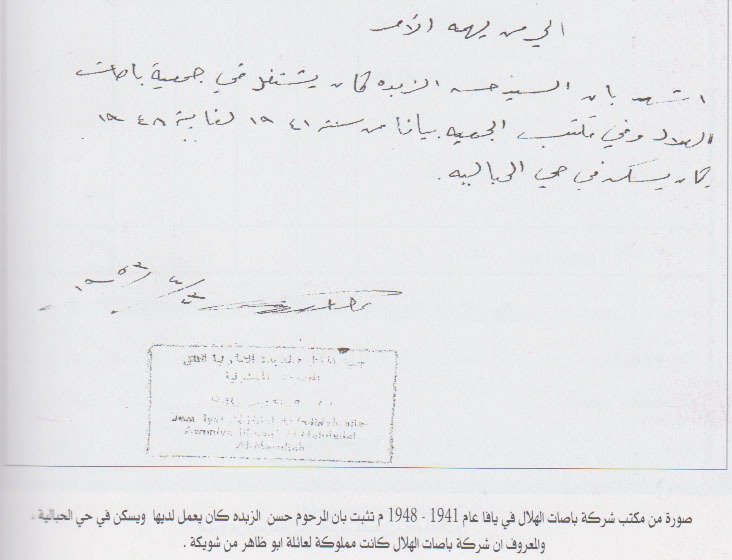 الى من يهمه الأمر
اشهد بان السيد حسن الزبده كان يشتغل في جمعية باصات
الهلال وفي مكتب الجمعيه بيافا من سنة ١٩٤١ لغاية ١٩٤٨
كان يسكن في حي الجباليه.
صورة من مكتب شركة باصات الهلال في يافا عام 1941 - 1948 م تثبت بان المرحوم حسن الزبده كان يعمل لديها ويسكن في حي الجبالية .
والمعروف ان شركة باصات الهلال كانت مملوكة لعائلة ابو ظاهر من شويكة .